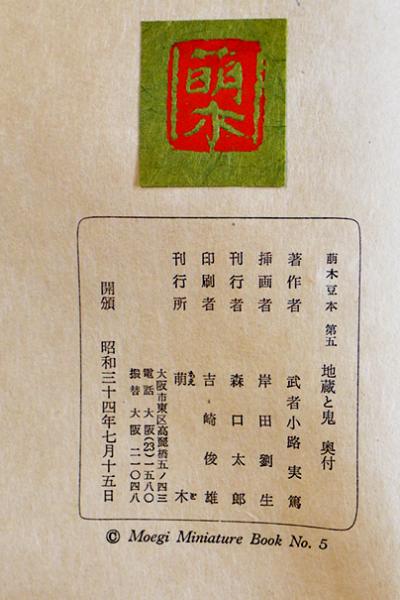 萠木
萠木豆本 第五 地蔵と鬼 奥付
著作者 武者小路実篤
挿画者 岸田劉生
刊行者 森口太郎
印刷者 吉崎俊雄
刊行所 萠木
もえ ぎ
大阪市東区高麗橋五ノ四三
電話 大阪(23)一五八〇
振替 大阪 二一〇四八
開頒 昭和三十四年七月十五日
© Moegi Miniature Book No. 5